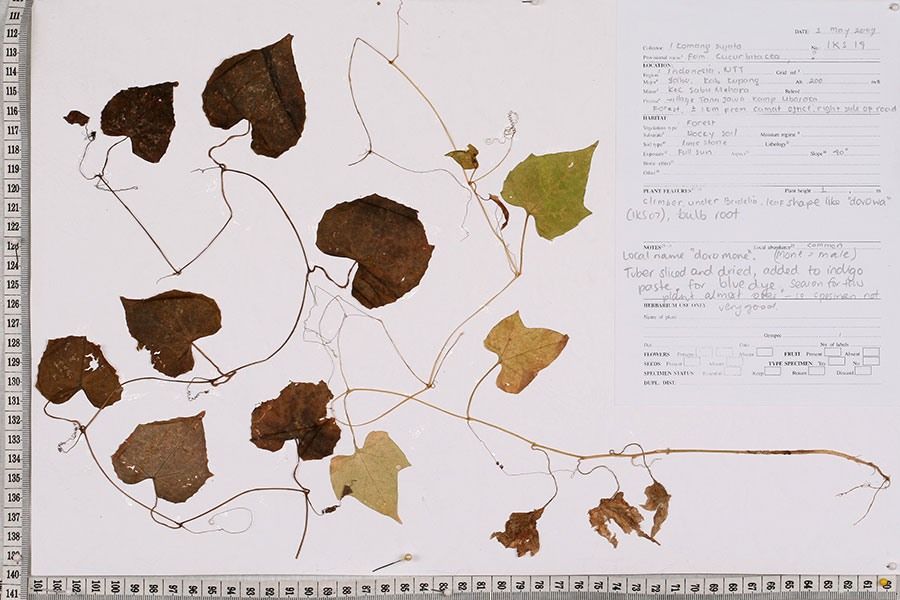 DATE 1 May 2009
Collector I Komang Sujata No. IKS 19
Provisional name Fam. Cucurbitacea
LOCATION
Region Indonesia, NTT Grid ref
Major Sabu, Kab Kupang Alt. 200 m/ft
Minor Kec Sabu Mehara Relevé
Precise village Tana Jawa Kamp
Forest, ± 1 km from Camat office, right side of road
HABITAT
Vegetation type Forest
Substrate Rocky Soil Moisture regime
Soil type Lime Stone Lithology
Exposure Full Sun Aspect Slope 40°
Biotic effect
Other
PLANT FEATURES Plant height 1 m
climber, under Bridelia, leaf shape like "dorowa"
(IKS07), bulb root
NOTES Local abundance common
Local name "doro mone". (Mone = male)
Tuber sliced and dried, added to indigo
paste, for blue dye. Season for this
plant almost over - is specimen not
very good.
HERBARIUM USE ONLY
Name of plant
Det. Date No of labels
FLOWERS Present Absent FRUIT Present Absent
SEEDS Present Absent TYPE SPECIMEN Yes No
SPECIMEN STATUS Essential Keep Return Discard
DUPL. DIST.
112
113
114
115
116
117
118
119
120
121
122
123
124
125
126
127
128
129
130
131
132
133
134
135
136
137
138
139
140
141
101 100 99 98 97 96 95 94 93 92 91 90 89 88 87 86 85 84 83 82 81 80 79 78 77 76 75 74 73 72 71 70 69 68 67 66 65 64 63 62 61